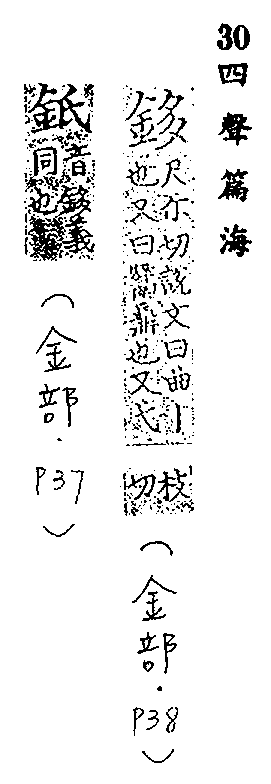 30 四聲篇海
鉹 尺尒切說文曰曲丨
也又曰鬵鼎也又弋
枝
切
(金部.P38)
音鉹義
同也
(金部.P37)